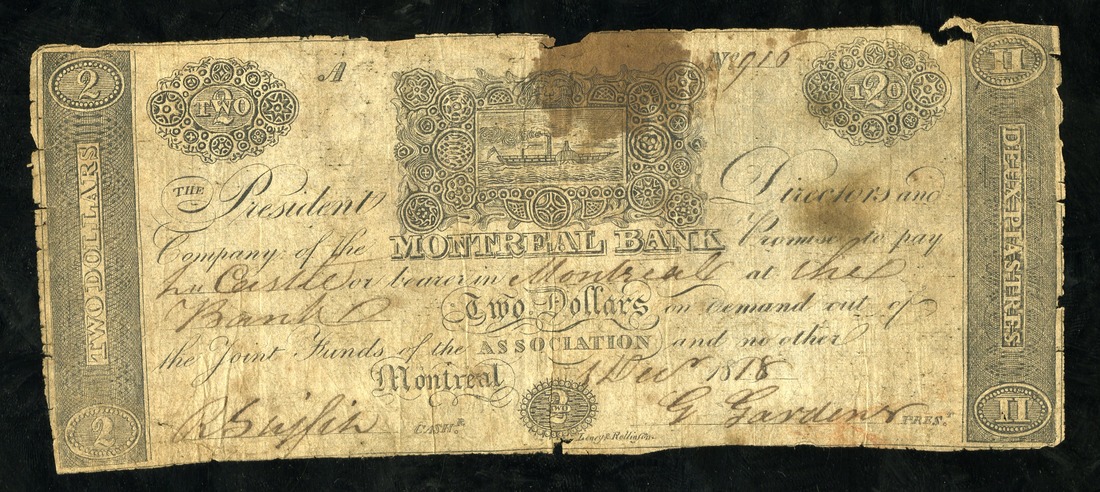 2 A No 916 II
TWO 2 2
THE President Directors and
Company of the MONTREAL BANK Promise to pay
Castle or bearer in Montreal at the
Bank Two Dollars on Demand out of
the Joint Funds of the ASSOCIATION and no other
Montreal 1 Decr 1818
R Griffin CASHr. 2 TWO G Garden PREST.
Leney & Rollinson
TWO DOLLARS
DEUX PIASTRES
2 II